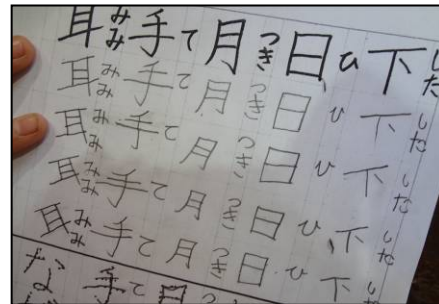 耳みみ 手て 月つき 日ひ 下した
耳みみ 手て 月つき 日ひ 下した
耳みみ 手て 月つき 日ひ 下した
耳みみ 手て 月つき 日ひ 下した
耳みみ 手て 月つき 日ひ 下した
な 手て